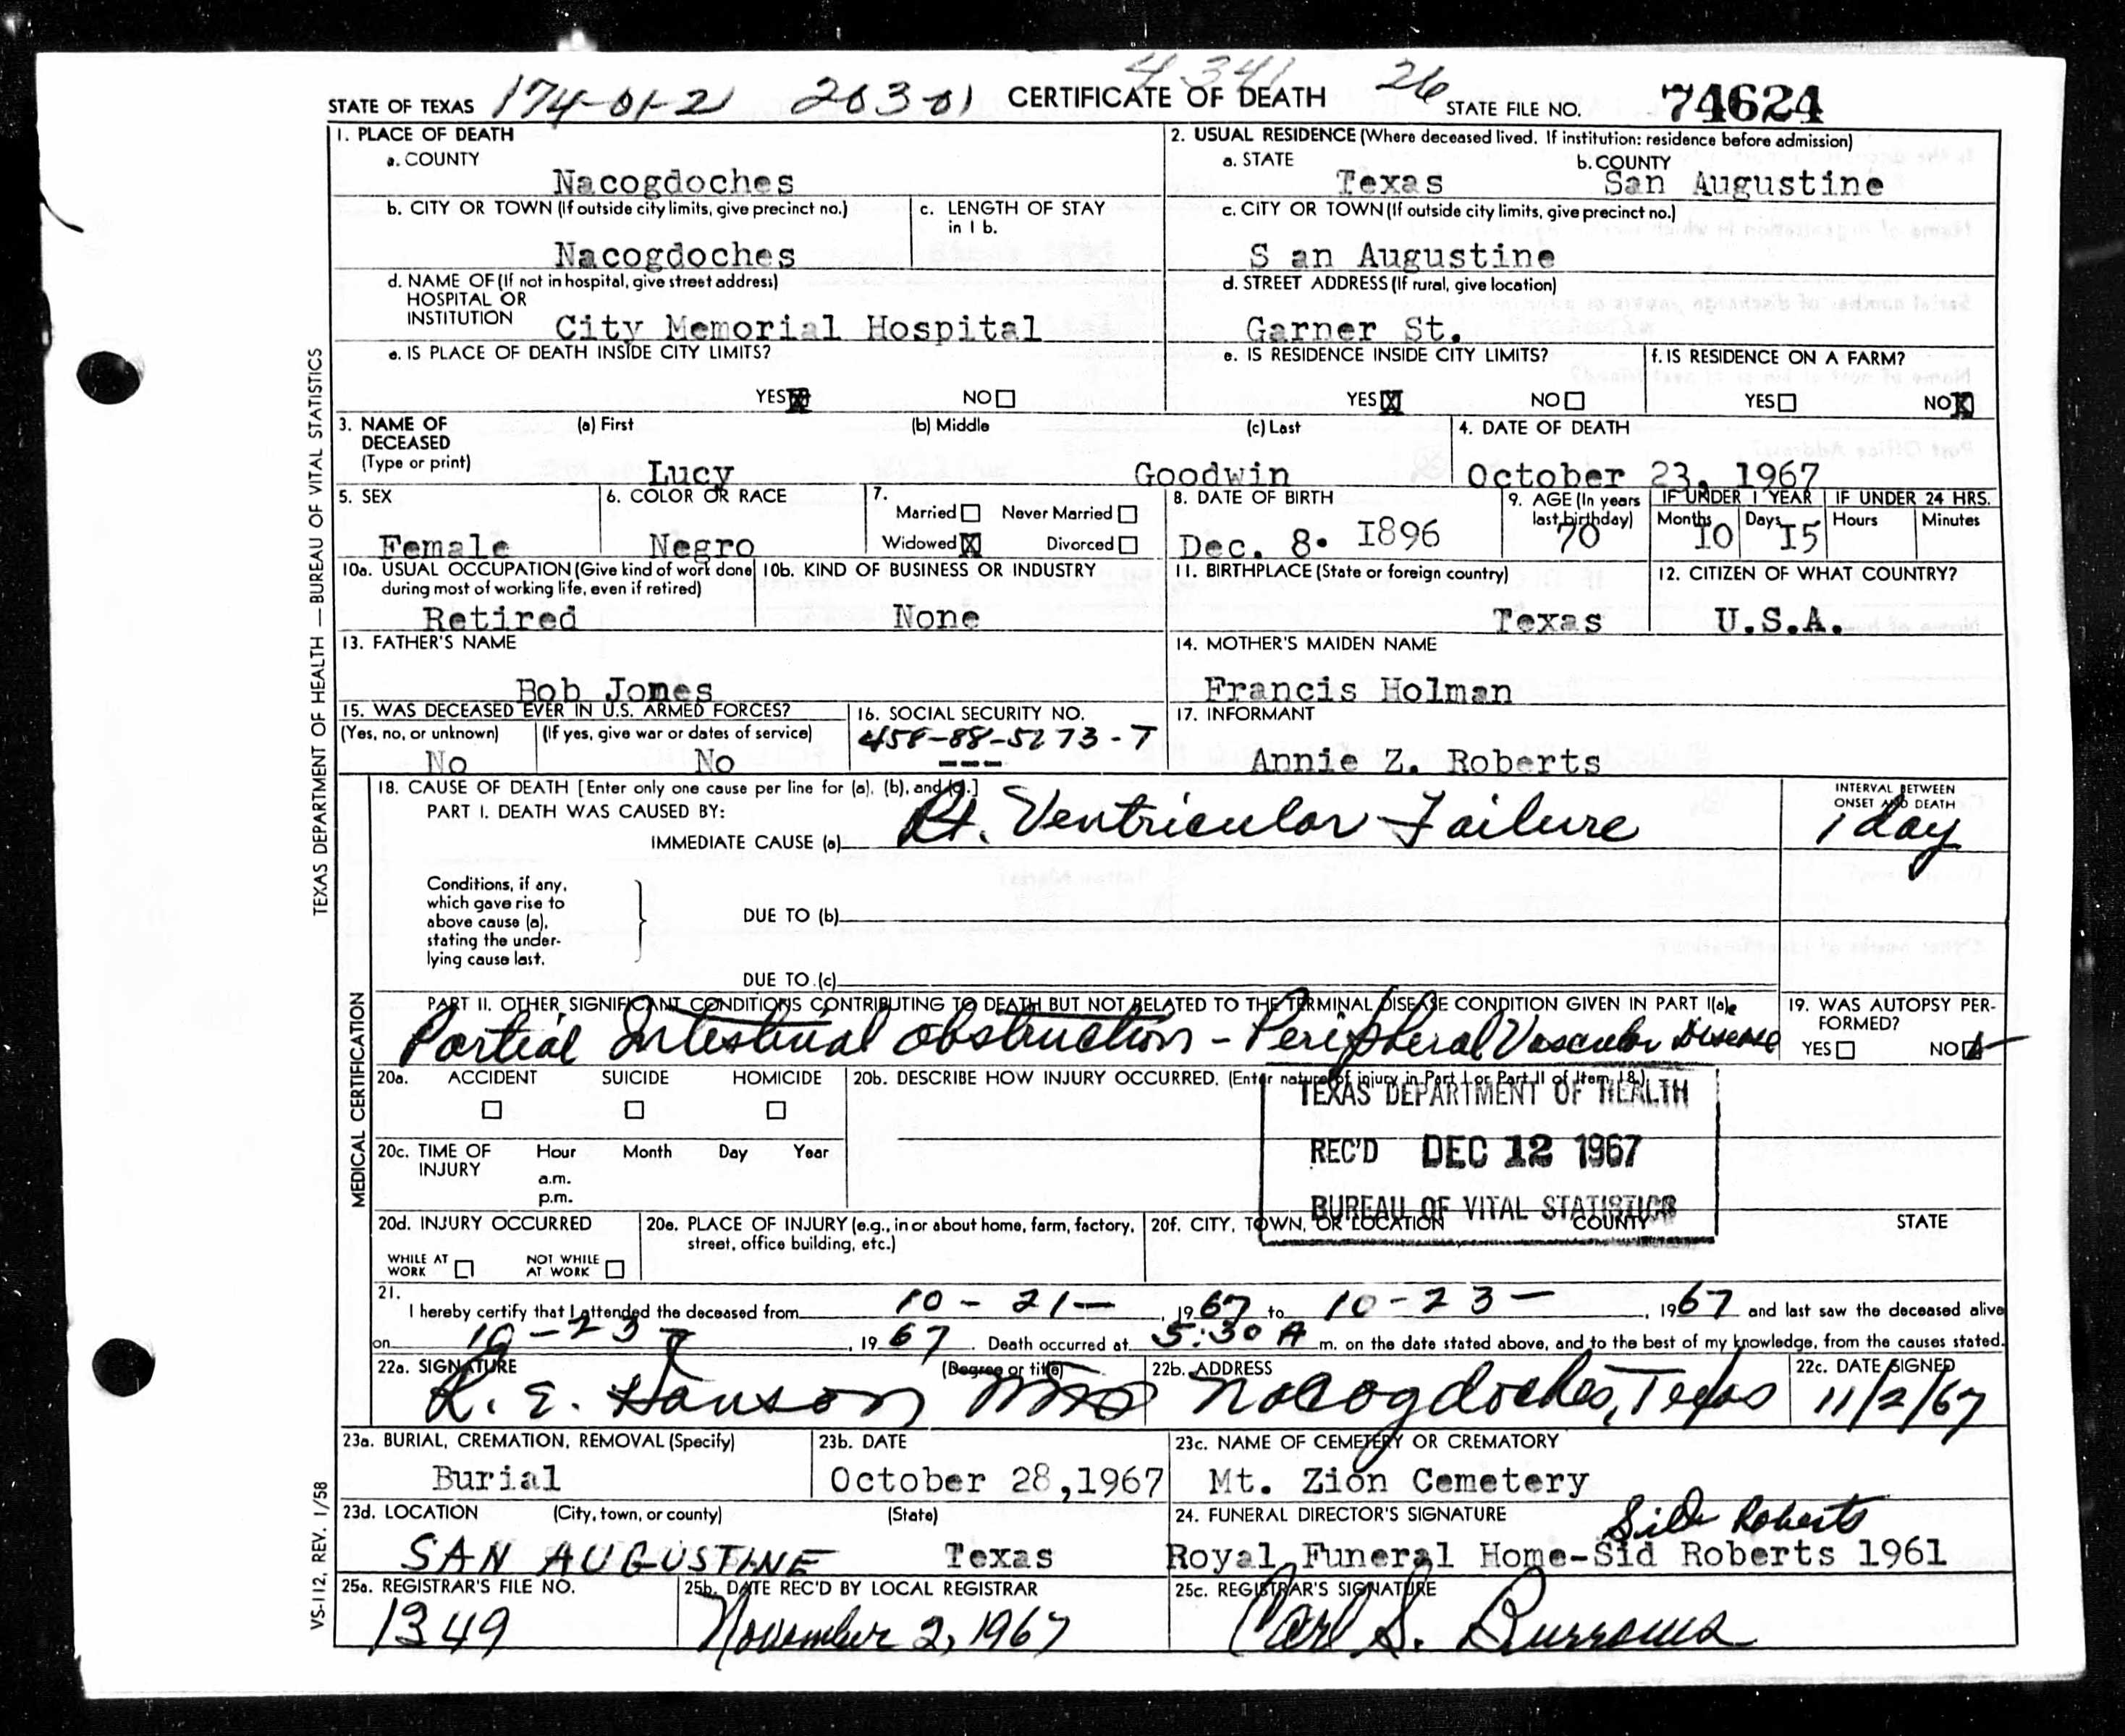 4341 26
STATE OF TEXAS 174-01-2 203-01 CERTIFICATE OF DEATH STATE FILE NO. 74624
1. PLACE OF DEATH
a. COUNTY
Nacogdoches
2. USUAL RESIDENCE (Where deceased lived. If institution: residence before admission)
a. STATE b. COUNTY
Texas San Augustine
b. CITY OR TOWN (If outside city limits, give precinct no.)
Nacogdoches
c. LENGTH OF STAY
in 1 b.
c. CITY OR TOWN (If outside city limits, give precinct no.)
S an Augustine
d. NAME OF (If not in hospital, give street address)
HOSPITAL OR
INSTITUTION City Memorial Hospital
d. STREET ADDRESS (If rural, give location)
Garner St.
e. IS PLACE OF DEATH INSIDE CITY LIMITS?
YES☒ NO☐
e. IS RESIDENCE INSIDE CITY LIMITS?
YES☒ NO☐
f. IS RESIDENCE ON A FARM?
YES☐ NO☒
3. NAME OF
DECEASED
(Type or print)
(a) First (b) Middle (c) Last
Lucy Goodwin
4. DATE OF DEATH
October 23, 1967
5. SEX
Female
6. COLOR OR RACE
Negro
7.
Married☐ Never Married☐
Widowed☒ Divorced☐
8. DATE OF BIRTH
Dec. 8. 1896
9. AGE (In years
last birthday)
70
IF UNDER 1 YEAR IF UNDER 24 HRS.
Months Days Hours Minutes
10 15
10a. USUAL OCCUPATION (Give kind of work done
during most of working life, even if retired)
Retired
10b. KIND OF BUSINESS OR INDUSTRY
None
11. BIRTHPLACE (State or foreign country)
Texas
12. CITIZEN OF WHAT COUNTRY?
U.S.A.
13. FATHER'S NAME
Bob Jones
14. MOTHER'S MAIDEN NAME
Francis Holman
15. WAS DECEASED EVER IN U.S. ARMED FORCES?
(Yes, no, or unknown) (If yes, give war or dates of service)
No No
16. SOCIAL SECURITY NO.
458-88-5273-T
---
17. INFORMANT
Annie Z. Roberts
18. CAUSE OF DEATH [Enter only one cause per line for (a), (b), and (c).]
PART I. DEATH WAS CAUSED BY:
IMMEDIATE CAUSE (a) Rt. Ventricular Failure
INTERVAL BETWEEN
ONSET AND DEATH
1 day
Conditions, if any,
which gave rise to
above cause (a),
stating the under-
lying cause last.
DUE TO (b)
DUE TO (c)
PART II. OTHER SIGNIFICANT CONDITIONS CONTRIBUTING TO DEATH BUT NOT RELATED TO THE TERMINAL DISEASE CONDITION GIVEN IN PART I(a)
Partial Intestinal obstruction - Peripheral Vascular Disease
19. WAS AUTOPSY PER-
FORMED?
YES☐ NO☒
20a. ACCIDENT SUICIDE HOMICIDE
☐ ☐ ☐
20b. DESCRIBE HOW INJURY OCCURRED. (Enter nature of injury in Part I or Part II of Item 18.)
TEXAS DEPARTMENT OF HEALTH
REC'D DEC 12 1967
BUREAU OF VITAL STATISTICS
20c. TIME OF
INJURY
Hour Month Day Year
a.m.
p.m.
20d. INJURY OCCURRED
WHILE AT
WORK ☐
NOT WHILE
AT WORK ☐
20e. PLACE OF INJURY (e.g., in or about home, farm, factory,
street, office building, etc.)
20f. CITY, TOWN, OR LOCATION COUNTY STATE
21.
I hereby certify that I attended the deceased from 10-21-, 1967 to 10-23-, 1967 and last saw the deceased alive
on 10-23-, 1967. Death occurred at 5:30 A m. on the date stated above, and to the best of my knowledge, from the causes stated.
22a. SIGNATURE (Degree or title)
R. E. Hanson MD
22b. ADDRESS
Nacogdoches, Texas
22c. DATE SIGNED
11/2/67
23a. BURIAL, CREMATION, REMOVAL (Specify)
Burial
23b. DATE
October 28,1967
23c. NAME OF CEMETERY OR CREMATORY
Mt. Zion Cemetery
23d. LOCATION (City, town, or county) (State)
SAN AUGUSTINE Texas
24. FUNERAL DIRECTOR'S SIGNATURE
Sid Roberts
Royal Funeral Home-Sid Roberts 1961
25a. REGISTRAR'S FILE NO.
1349
25b. DATE REC'D BY LOCAL REGISTRAR
November 2, 1967
25c. REGISTRAR'S SIGNATURE
Carl S. Burrows
TEXAS DEPARTMENT OF HEALTH — BUREAU OF VITAL STATISTICS
MEDICAL CERTIFICATION
VS-112, REV. 1/58